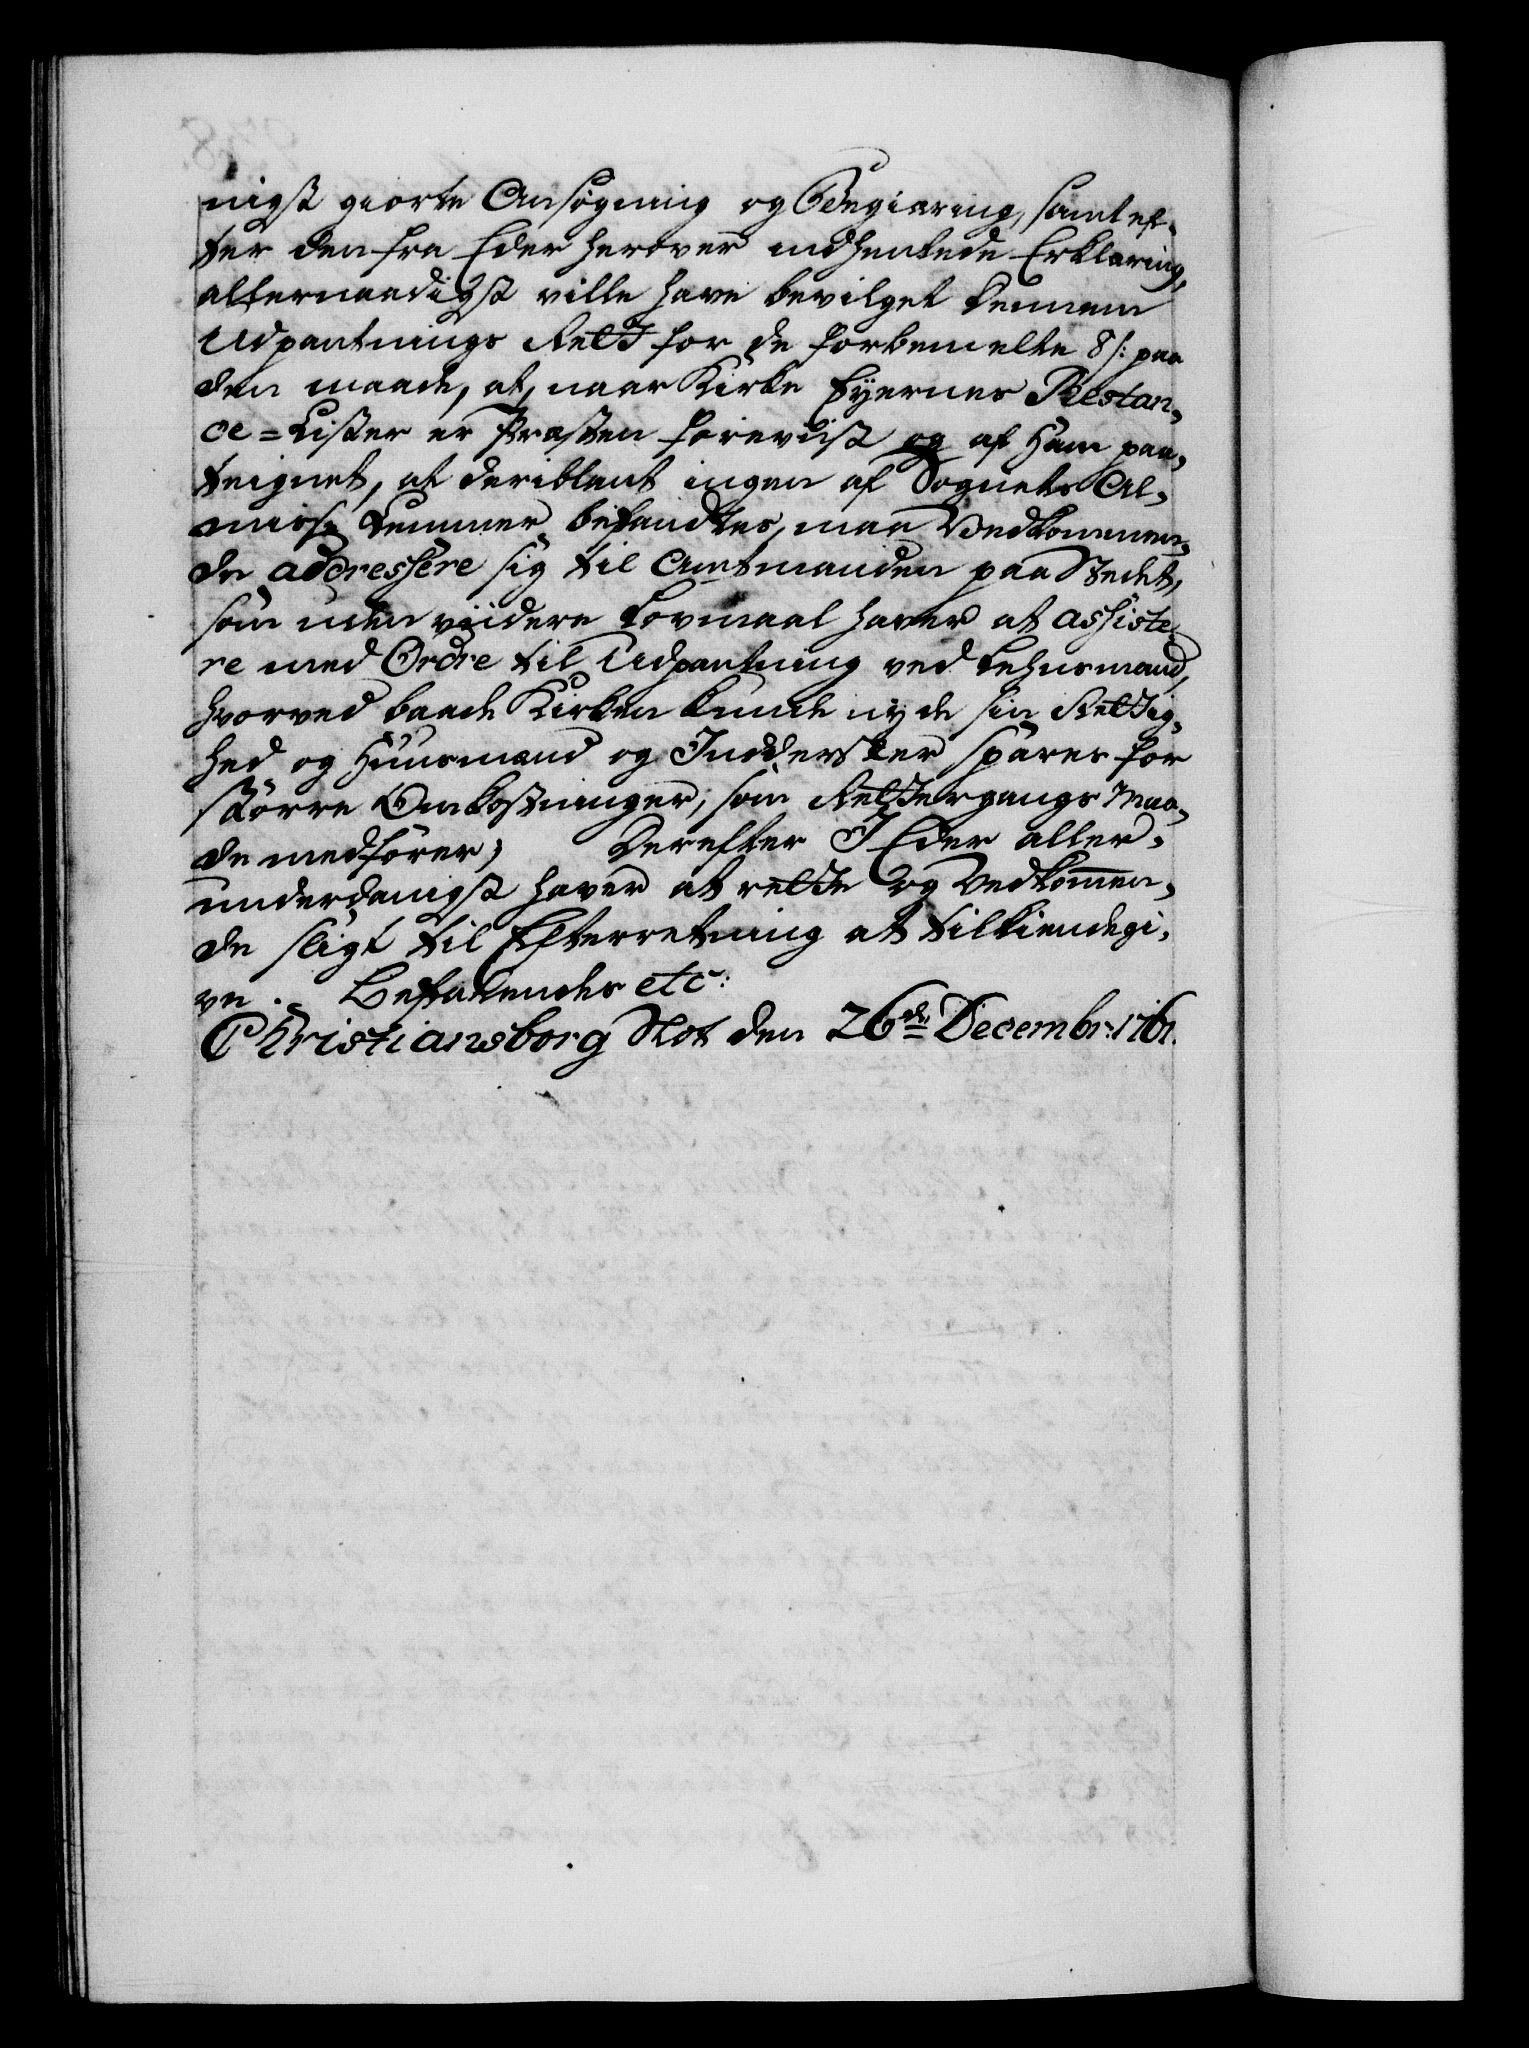 nigst giorte Ansögning og Begiæring, samt ef-
ter den fra Eder herover indhentede Erklæring,
allernaadigst ville have bevilget dennem
Udpantnings Rett for de forbemelte 8 s: paa
den maade, at, naar Kirke Eyernes Restan-
ce=Lister er Præsten foreviist og af Ham paa-
teignet, at deriblant ingen af Sognets Al-
misse Lemmer befandtes, maa Vedkommen-
de addressere sig til Amtmanden paa Stedet,
som uden viidere Lovmaal haver at assiste-
re med Ordre til Udpantning ved Lehnsmand,
hvorved baade Kirken kunde nyde sin Rettig-
hed og Huusmand og Inderster spares for
större Omkostninger, som Rettergangs Maa-
de medförer; Derefter I Eder aller-
underdanigst haver at rette og Vedkommen-
de sligt til Efterretning at tilkiendegi-
ve. Befalendes etc:
Christiansborg Slot den 26de Decembr: 1761.